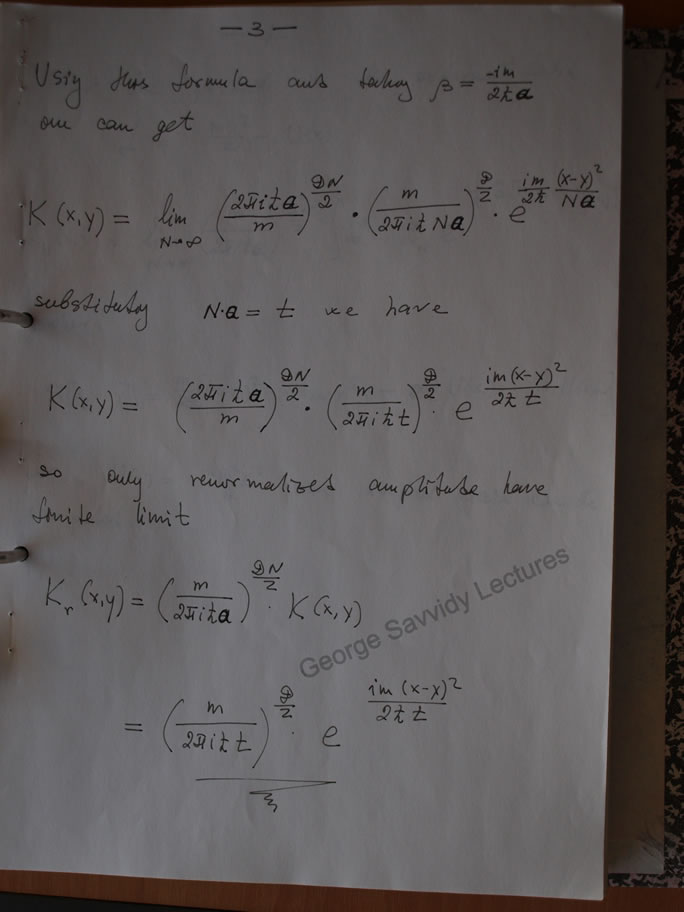 — 3 —
Usig this formula and takig β = -im/2ħa
one can get
K(x,y) = lim N→∞ (2πiħa/m)^{DN/2} · (m/2πiħNa)^{D/2} · e^{im/2ħ (x-y)²/Na}
substitutig N·a = t we have
K(x,y) = (2πiħa/m)^{DN/2} · (m/2πiħt)^{D/2} · e^{im(x-y)²/2ħt}
so only renormalized amplitude have
finite limit
K_r(x,y) = (m/2πiħa)^{DN/2} · K(x,y)
= (m/2πiħt)^{D/2} · e^{im(x-y)²/2ħt}
George Savvidy Lectures